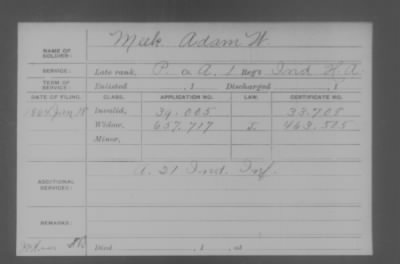 NAME OF SOLDIER: Meek Adam W.
SERVICE: Late rank, P. Co. A, 1 Reg't Ind. H. A.
TERM OF SERVICE: Enlisted , 1 Discharged , 1
DATE OF FILING. CLASS. APPLICATION NO. LAW. CERTIFICATE NO.
1864 Jan 18 Invalid, 39.005 33.708
Widow, 657.717 463.575
Minor,
ADDITIONAL SERVICES: A. 21 Ind. Inf.
REMARKS:
Died , 1 , at